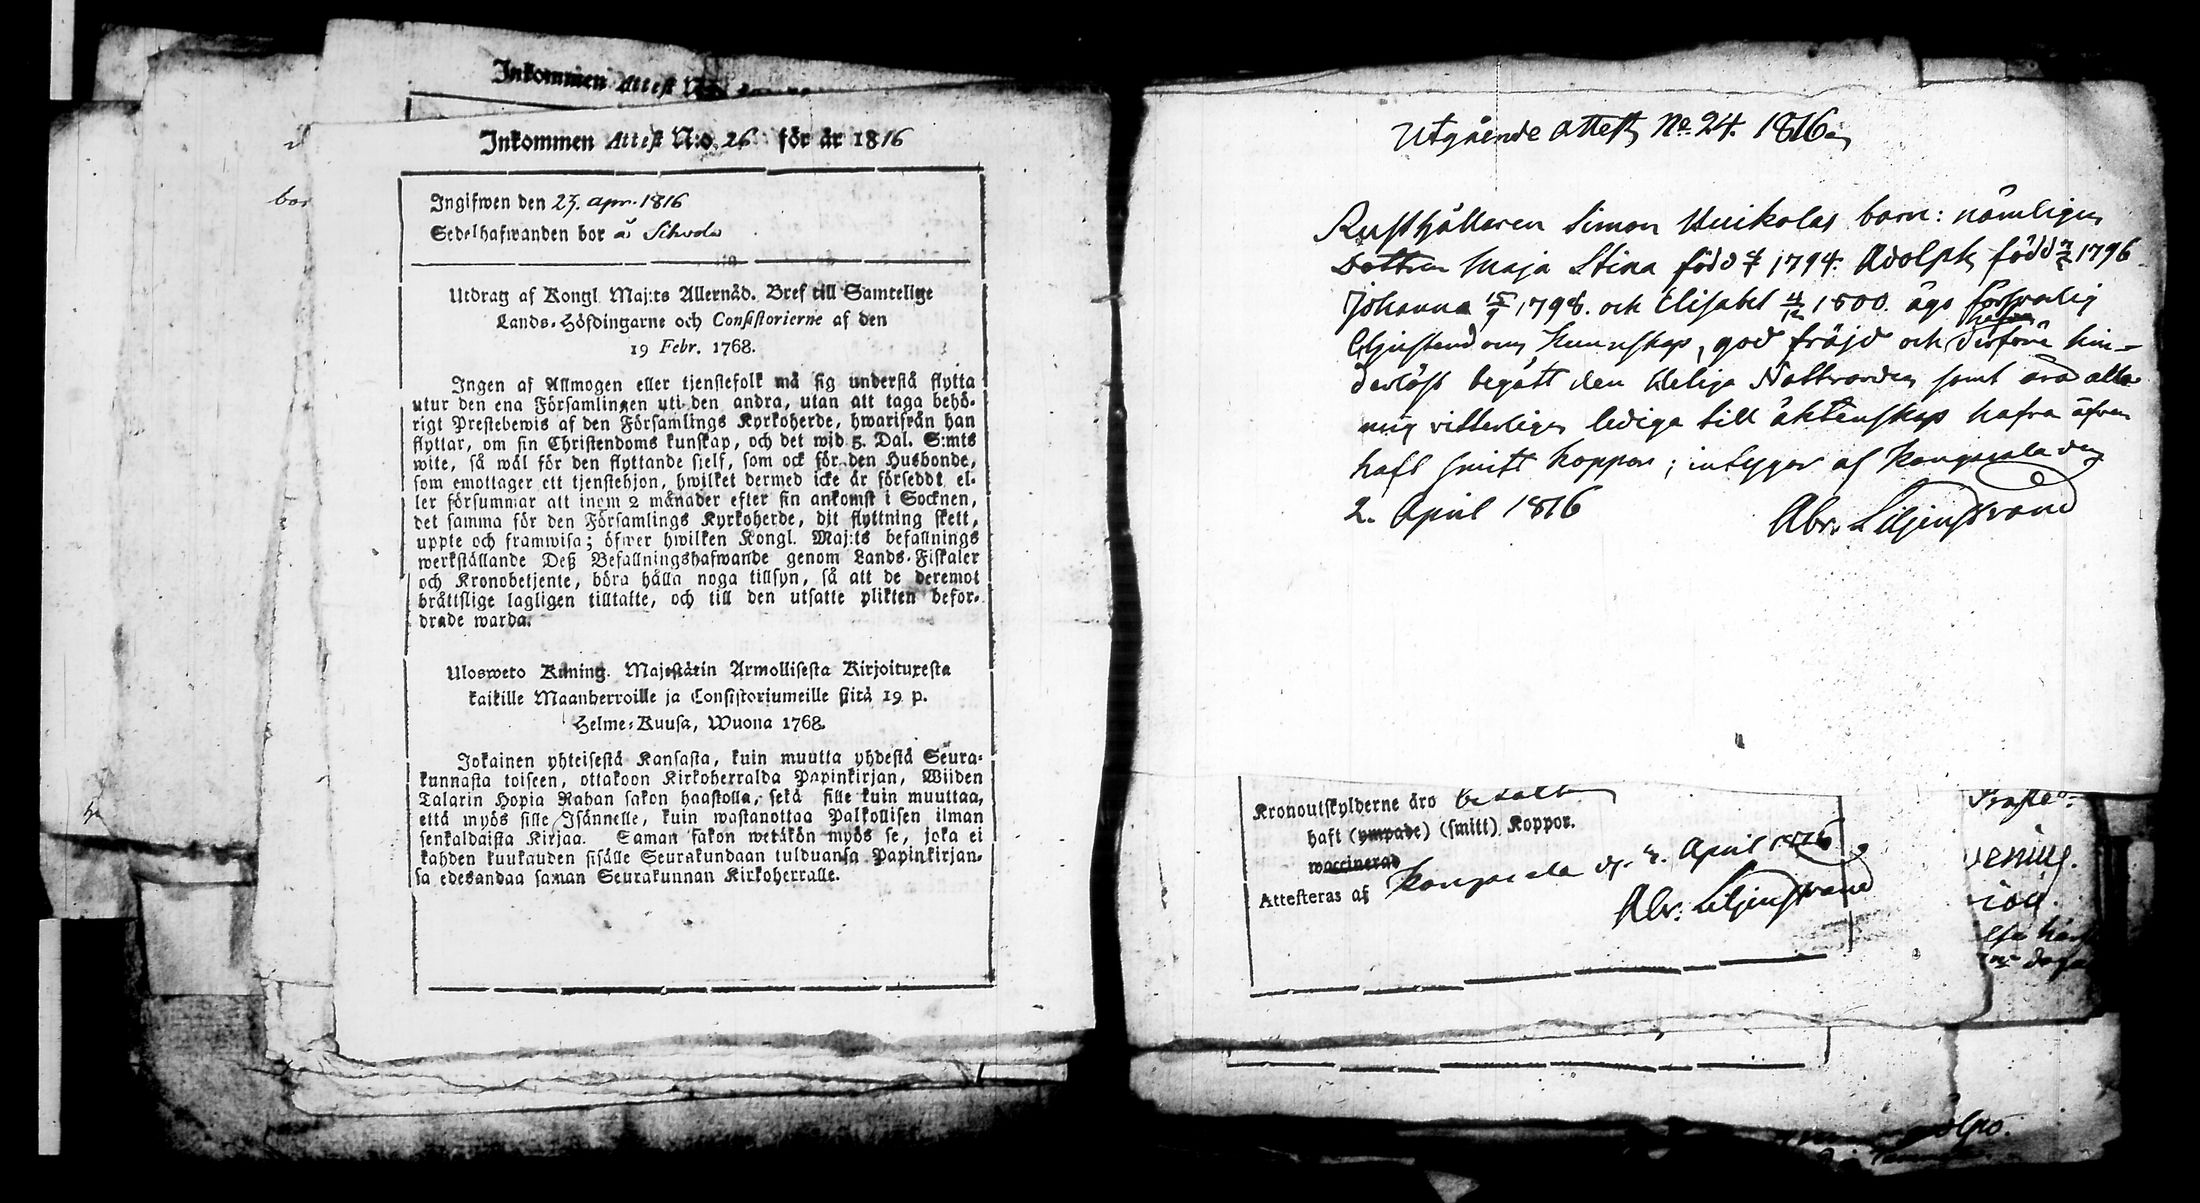 Inkommen Attest
Inkommen Attest N:o 26 för år 1816
Ingifwen den 23. apr. 1816
Sedelhafwanden bor å
Utdrag af Kongl. Maj:ts Allernåd. Bref till Samtelige
Lands-Höfdingarne och Consistorierne af den
19 Febr. 1768.
Ingen af Allmogen eller tjenstefolk må sig understå flytta
utur den ena Församlingen uti den andra, utan att taga behö-
rigt Prestebewis af den Församlings Kyrkoherde, hwarifrån han
flyttar, om sin Christendoms kunskap, och det wid 5. Dal. S:mts
wite, så wäl för den flyttande sielf, som ock för den Husbonde,
som emottager ett tjenstehjon, hwilket dermed icke är försedt, el-
ler försummar att inom 2 månader efter sin ankomst i Socknen,
det samma för den Församlings Kyrkoherde, dit flyttning skett,
uppte och framwisa; öfwer hwilken Kongl. Maj:ts befallnings
werkställande Deß Befallningshafwande genom Lands-Fiskaler
och Kronobetjente, böra hålla noga tillsyn, så att de deremot
bråttslige lagligen tilltalte, och till den utsatte plikten befor-
drade warda.
Ulosweto Kuning. Majestätin Armollisesta Kirjoituxesta
kaikille Maanherroille ja Consistoriumeille siitä 19 p.
Helme-Kuusa, Wuona 1768.
Jokainen yhteisestä Kansasta, kuin muutta yhdestä Seura-
kunnasta toiseen, ottakoon Kirkoherralda Papinkirjan, Wiiden
Talarin Hopia Rahan sakon haastolla, sekä sille kuin muuttaa,
että myös sille Isännelle, kuin wastanottaa Palkollisen ilman
senkaldaista Kirjaa. Saman sakon wetäkön myös se, joka ei
kahden kuukauden sisälle Seurakundaan tulduansa Papinkirjan-
sa edesandaa saman Seurakunnan Kirkoherralle.
Utgående attest No 24. 1816
Rusthållaren Simon Uuikolas barn: nämligen
Dottren Maja Stina född 1794. Adolph född 1796
Johanna 15/9 1798. och Elisabet 4/12 1800. äga försvarlig
Christendoms kunskap, god fräjd och hin-
derlöst begått den Heliga Nattvarden samt äro alla
mig vitterligen lediga till äktenskap hafva äfven
haft smitt koppor; intygar af Kangasala den
2. April 1816
Abr. Liljenstrand
Kronoutskylderne äro betalt
haft (ympade) (smitt) Koppor.
waccinerad
Attesteras af Kangasala d. April 1816
Abr. Liljenstrand